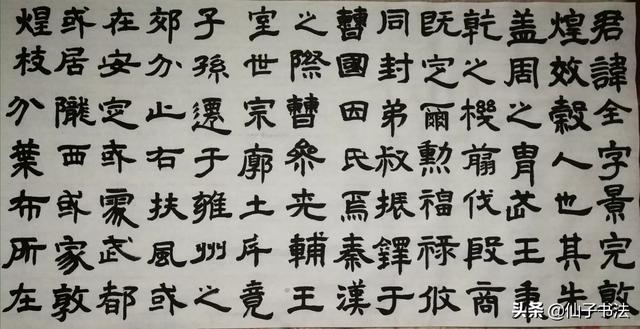 君諱全字景完敦
煌效穀人也其先
盖周之胄武王秉
乾之機翦伐殷商
既定爾勳福祿攸
同封弟叔振鐸于
曹國因氏焉秦漢
之際曹參夾輔王
室世宗廓土斥竟
子孫遷于雍州之
郊分止右扶風或
在安定或處武都
或居隴西或家敦
煌枝分葉布所在
头条 @仙子书法